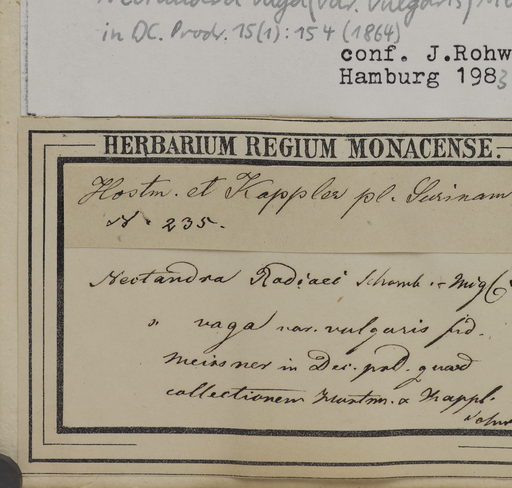 Nectandra vaga (var. vulgaris)
in DC. Prodr. 15(1): 154 (1864)
conf. J.Rohw
Hamburg 1983
HERBARIUM REGIUM MONACENSE.
Hostm. et Kappler pl. Surinam
N. 235.
Nectandra Rodiaei Schomb.
" vaga var. vulgaris fid.
Meissner in Dec. prd. quoad
collectionem Hostm. & Kappl.